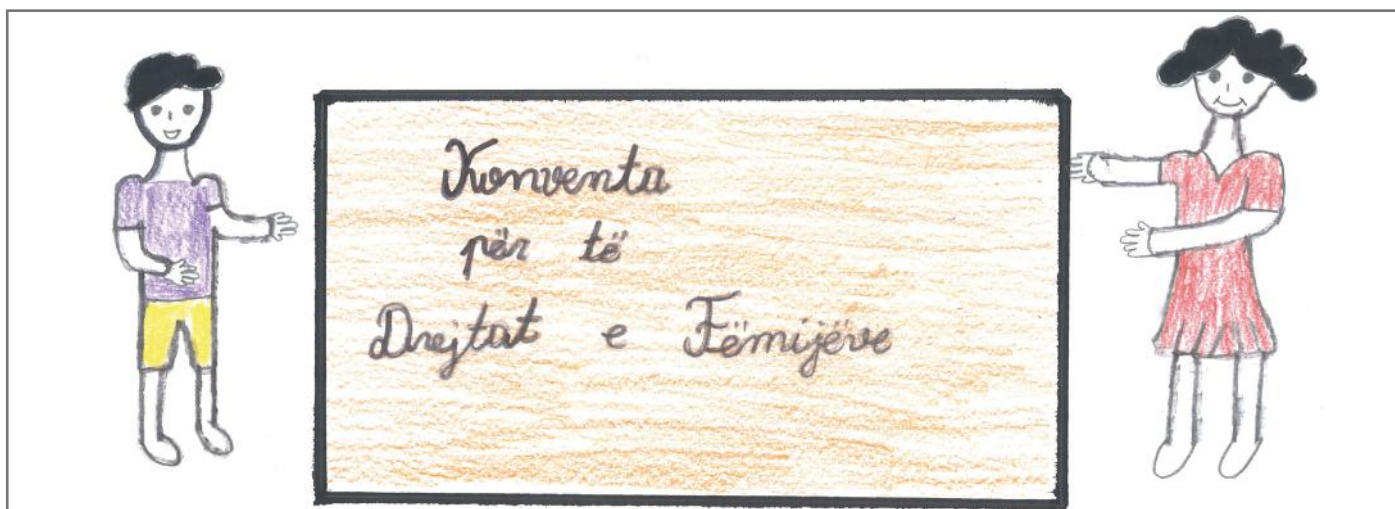 Konventa
për të
Drejtat e Fëmijëve